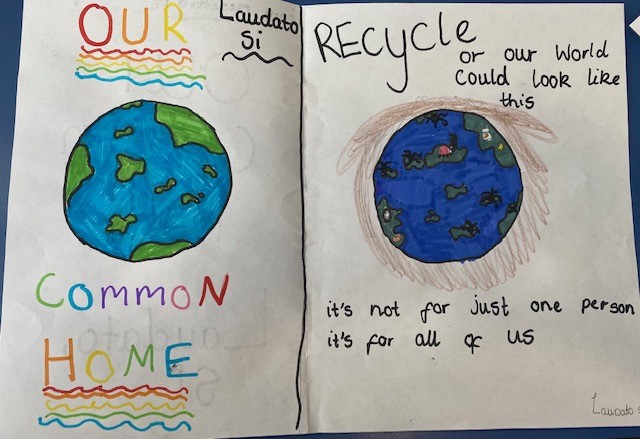 OUR
Laudato
Si
COMMON
HOME
RECYCLE
or our World
Could look like
this
it's not for just one person
it's for all of us
Laudato